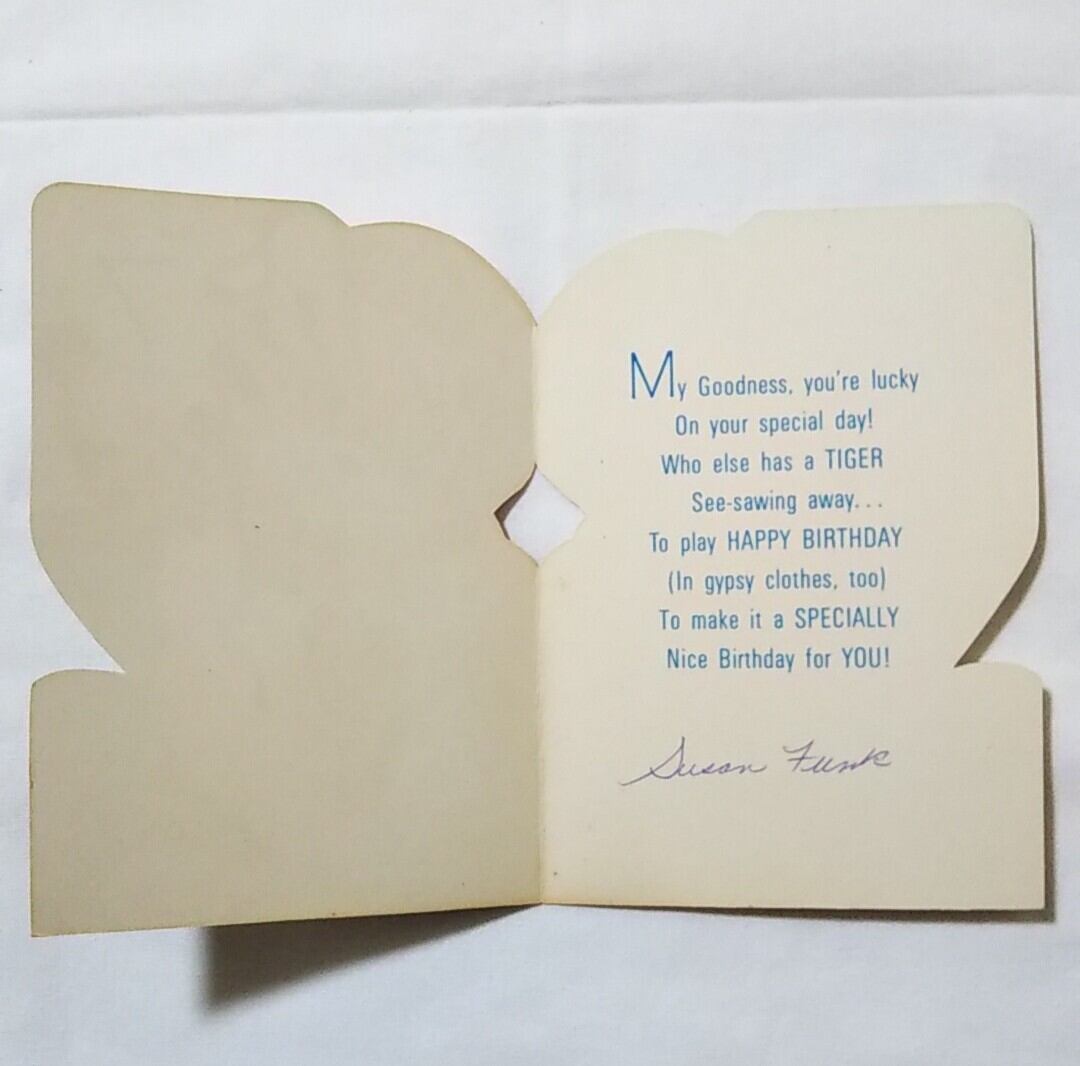 My Goodness, you're lucky
On your special day!
Who else has a TIGER
See-sawing away...
To play HAPPY BIRTHDAY
(In gypsy clothes, too)
To make it a SPECIALLY
Nice Birthday for YOU!
Susan Funk